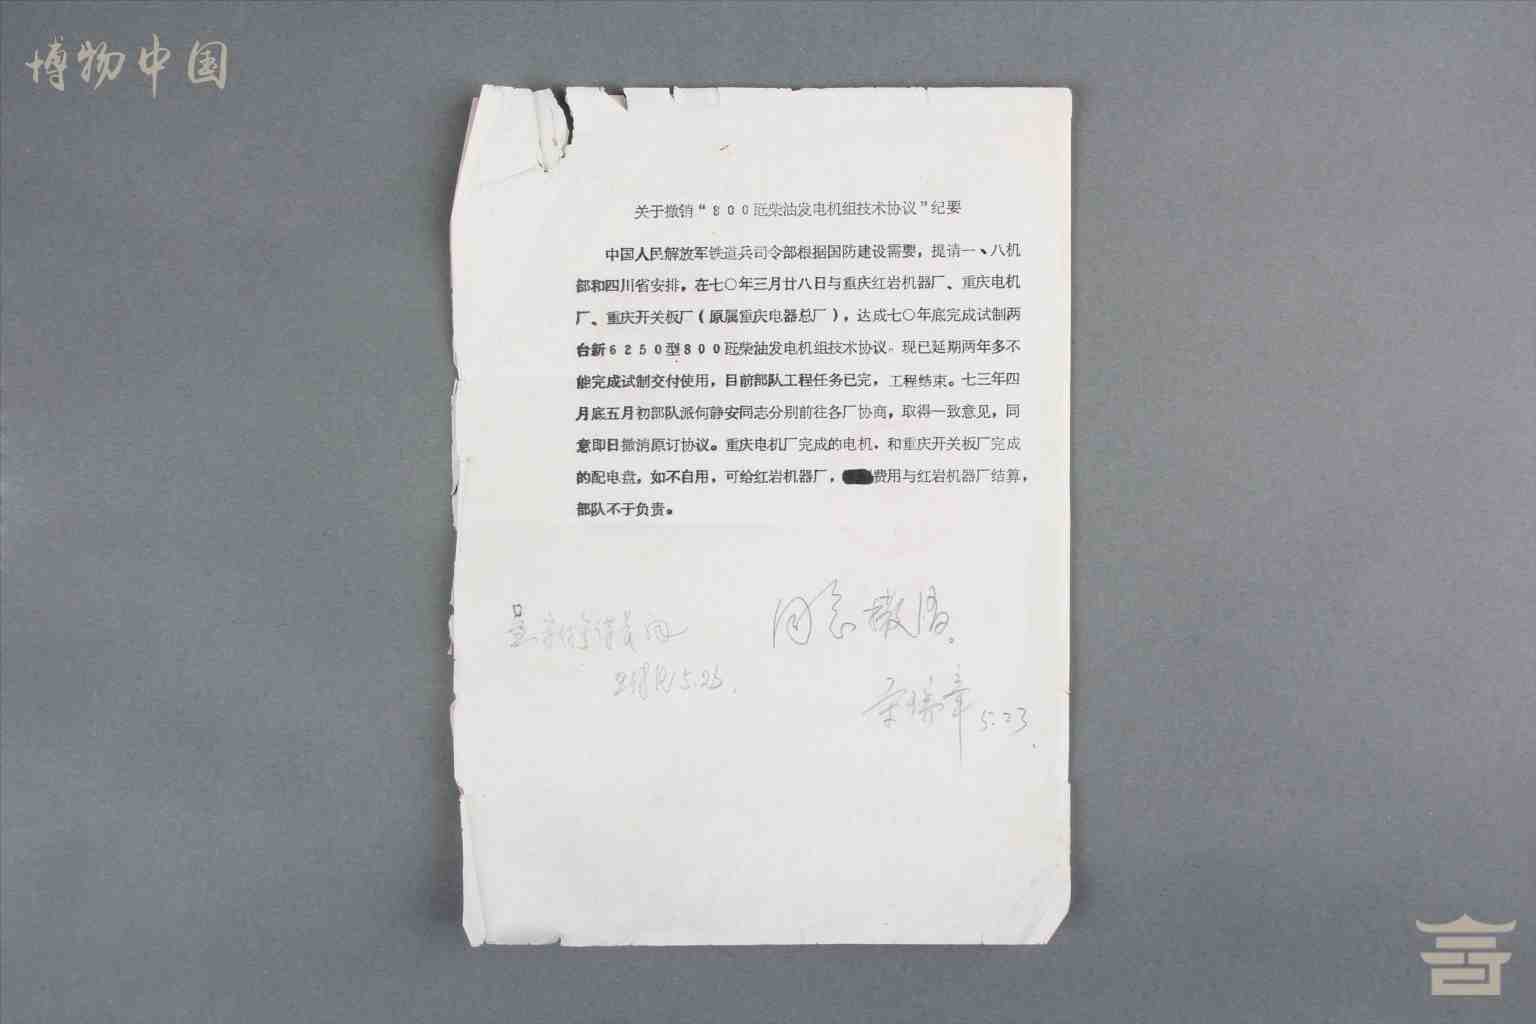 博物中国
关于撤销“800瓩柴油发电机组技术协议”纪要
中国人民解放军铁道兵司令部根据国防建设需要，提请一、八机
部和四川省安排，在七〇年三月廿八日与重庆红岩机器厂、重庆电机
厂、重庆开关板厂（原属重庆电器总厂），达成七〇年底完成试制两
台新6250型800瓩柴油发电机组技术协议。现已延期两年多不
能完成试制交付使用，目前部队工程任务已完，工程结束。七三年四
月底五月初部队派何静安同志分别前往各厂协商，取得一致意见，同
意即日撤消原订协议。重庆电机厂完成的电机，和重庆开关板厂完成
的配电盘，如不自用，可给红岩机器厂，费用与红岩机器厂结算，
部队不于负责。
同意撤销。
5.23
5.23.